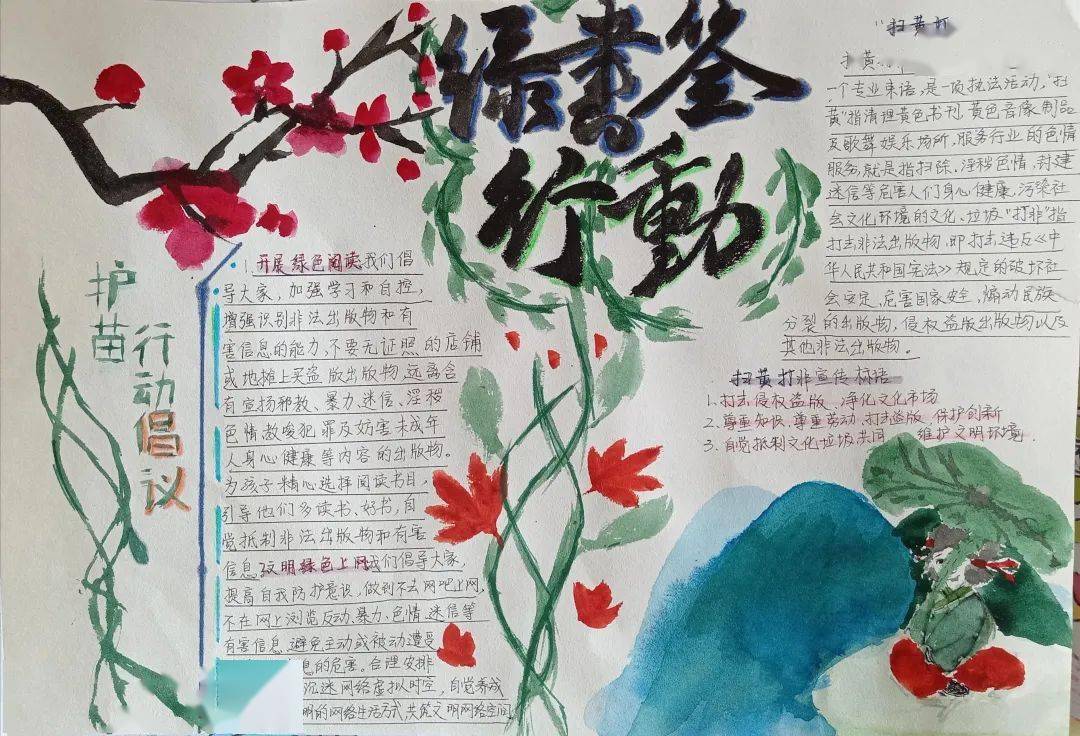 绿书签
行動
护苗
行动倡议
1.开展绿色阅读我们倡
导大家，加强学习和自控，
增强识别非法出版物和有
害信息的能力，不要无证照的店铺
或地摊上买盗版出版物，远离含
有宣扬邪教、暴力、迷信、淫秽
色情、教唆犯罪及妨害未成年
人身心健康等内容的出版物。
为孩子精心选择阅读书目，
引导他们多读书、好书，自
觉抵制非法出版物和有害
信息 文明绿色上网我们倡导大家，
提高自我防护意识，做到不去网吧上网，
不在网上浏览反动、暴力、色情、迷信等
有害信息，避免主动或被动遭受
息的危害。合理安排
沉迷网络虚拟时空，自觉养成
明的网络生活方式，共筑文明网络空间
"扫黄打
扫黄
一个专业术语，是一项执法活动，"扫
黄"指清理黄色书刊，黄色音像制品
及歌舞娱乐场所，服务行业的色情
服务，就是指扫除，淫秽色情，封建
迷信等危害人们身心健康，污染社
会文化环境的文化、垃圾"打非"指
打击非法出版物，即打击违反《中
华人民共和国宪法》规定的破坏社
会安定，危害国家安全，煽动民族
分裂的出版物，侵权盗版出版物以及
其他非法出版物。
扫黄打非宣传标语
1.打击侵权盗版 净化文化市场
2.尊重知识、尊重劳动、打击盗版、保护创新
3.自觉抵制文化垃圾共同 维护文明环境.